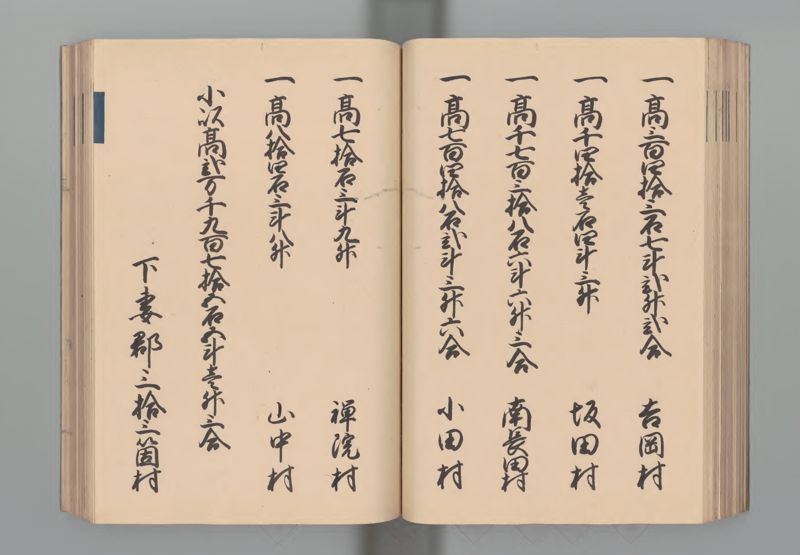 一高三百四拾三石七斗弐升弐合 吉岡村
一高千四拾壱石四斗三升 坂田村
一高千七百三拾八石六斗六升三合 南長田村
一高七百四拾八石弐斗三升六合 小田村
一高七拾石三斗九升 禅院村
一高八拾四石三斗八升 山中村
小以高弐万千九百七拾五石五斗壱升三合
下妻郡三拾三箇村